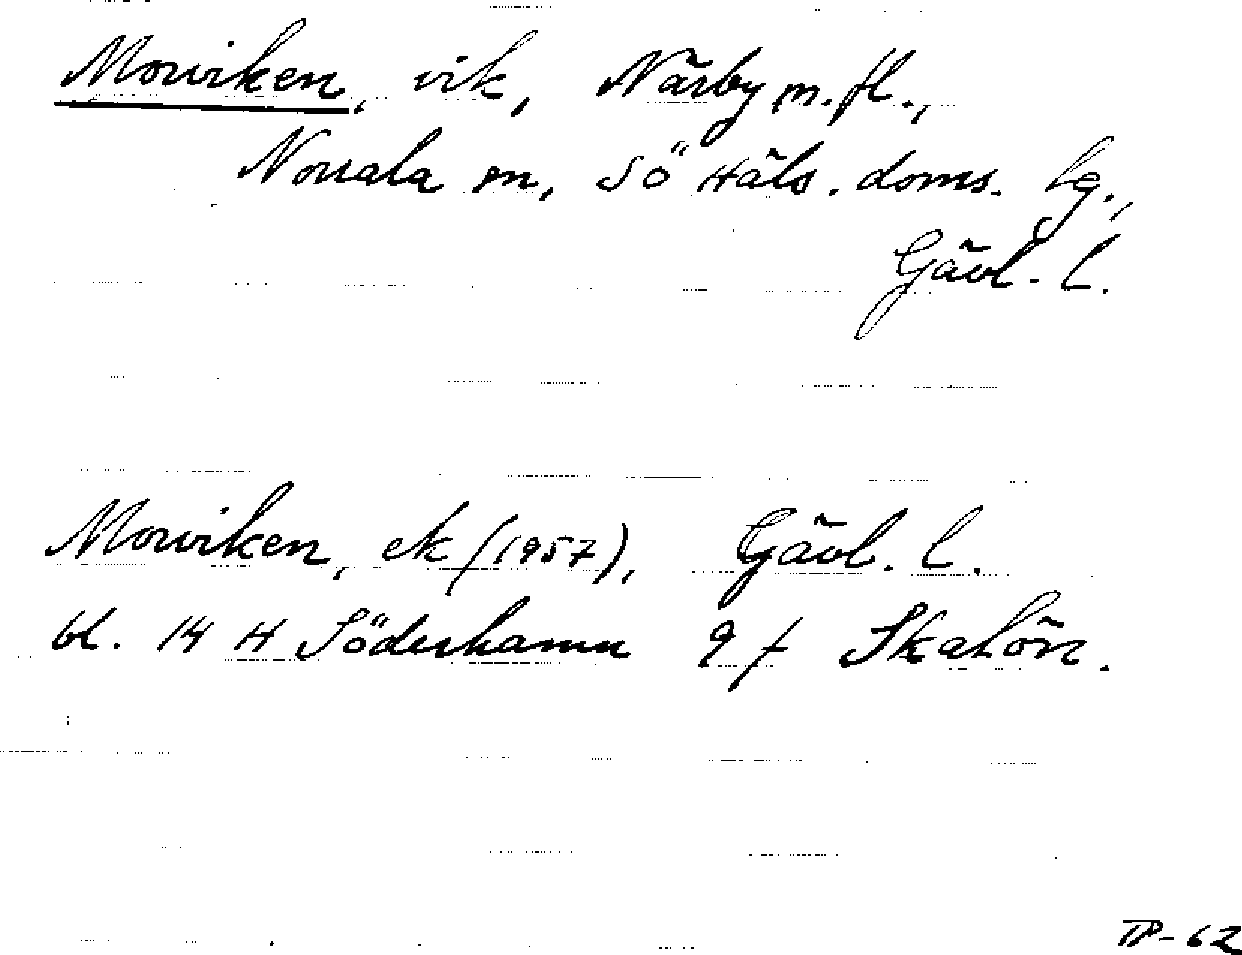 Morviken, vik, Närby m.fl.,
Norrala sn, Sö Häls. doms. lg.,
Gävl. l.
Morviken, ek (1957), Gävl. l.
bl. 14 H Söderhamn 9 f Skatön.
TP-62